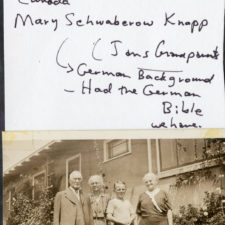 Canada
Mary Schwaberow Knapp
(Jams Grandparents
German Background
- Had the German
Bible
we have.